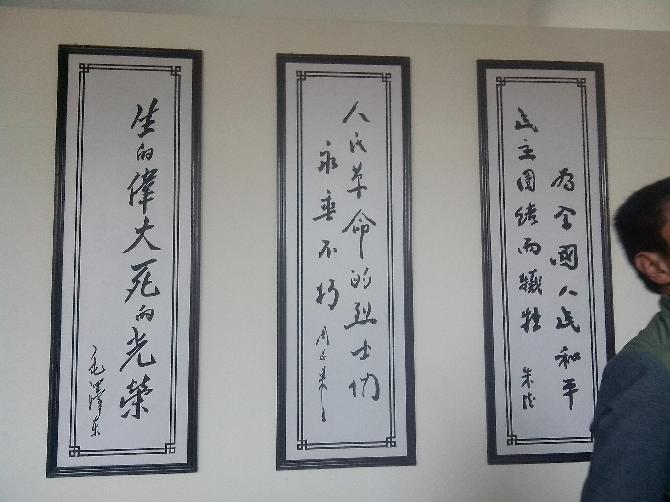 生的偉大死的光榮
毛澤東
人民革命的烈士们
永垂不朽
周恩来
为全國人民和平
民主團結而犧牲
朱德